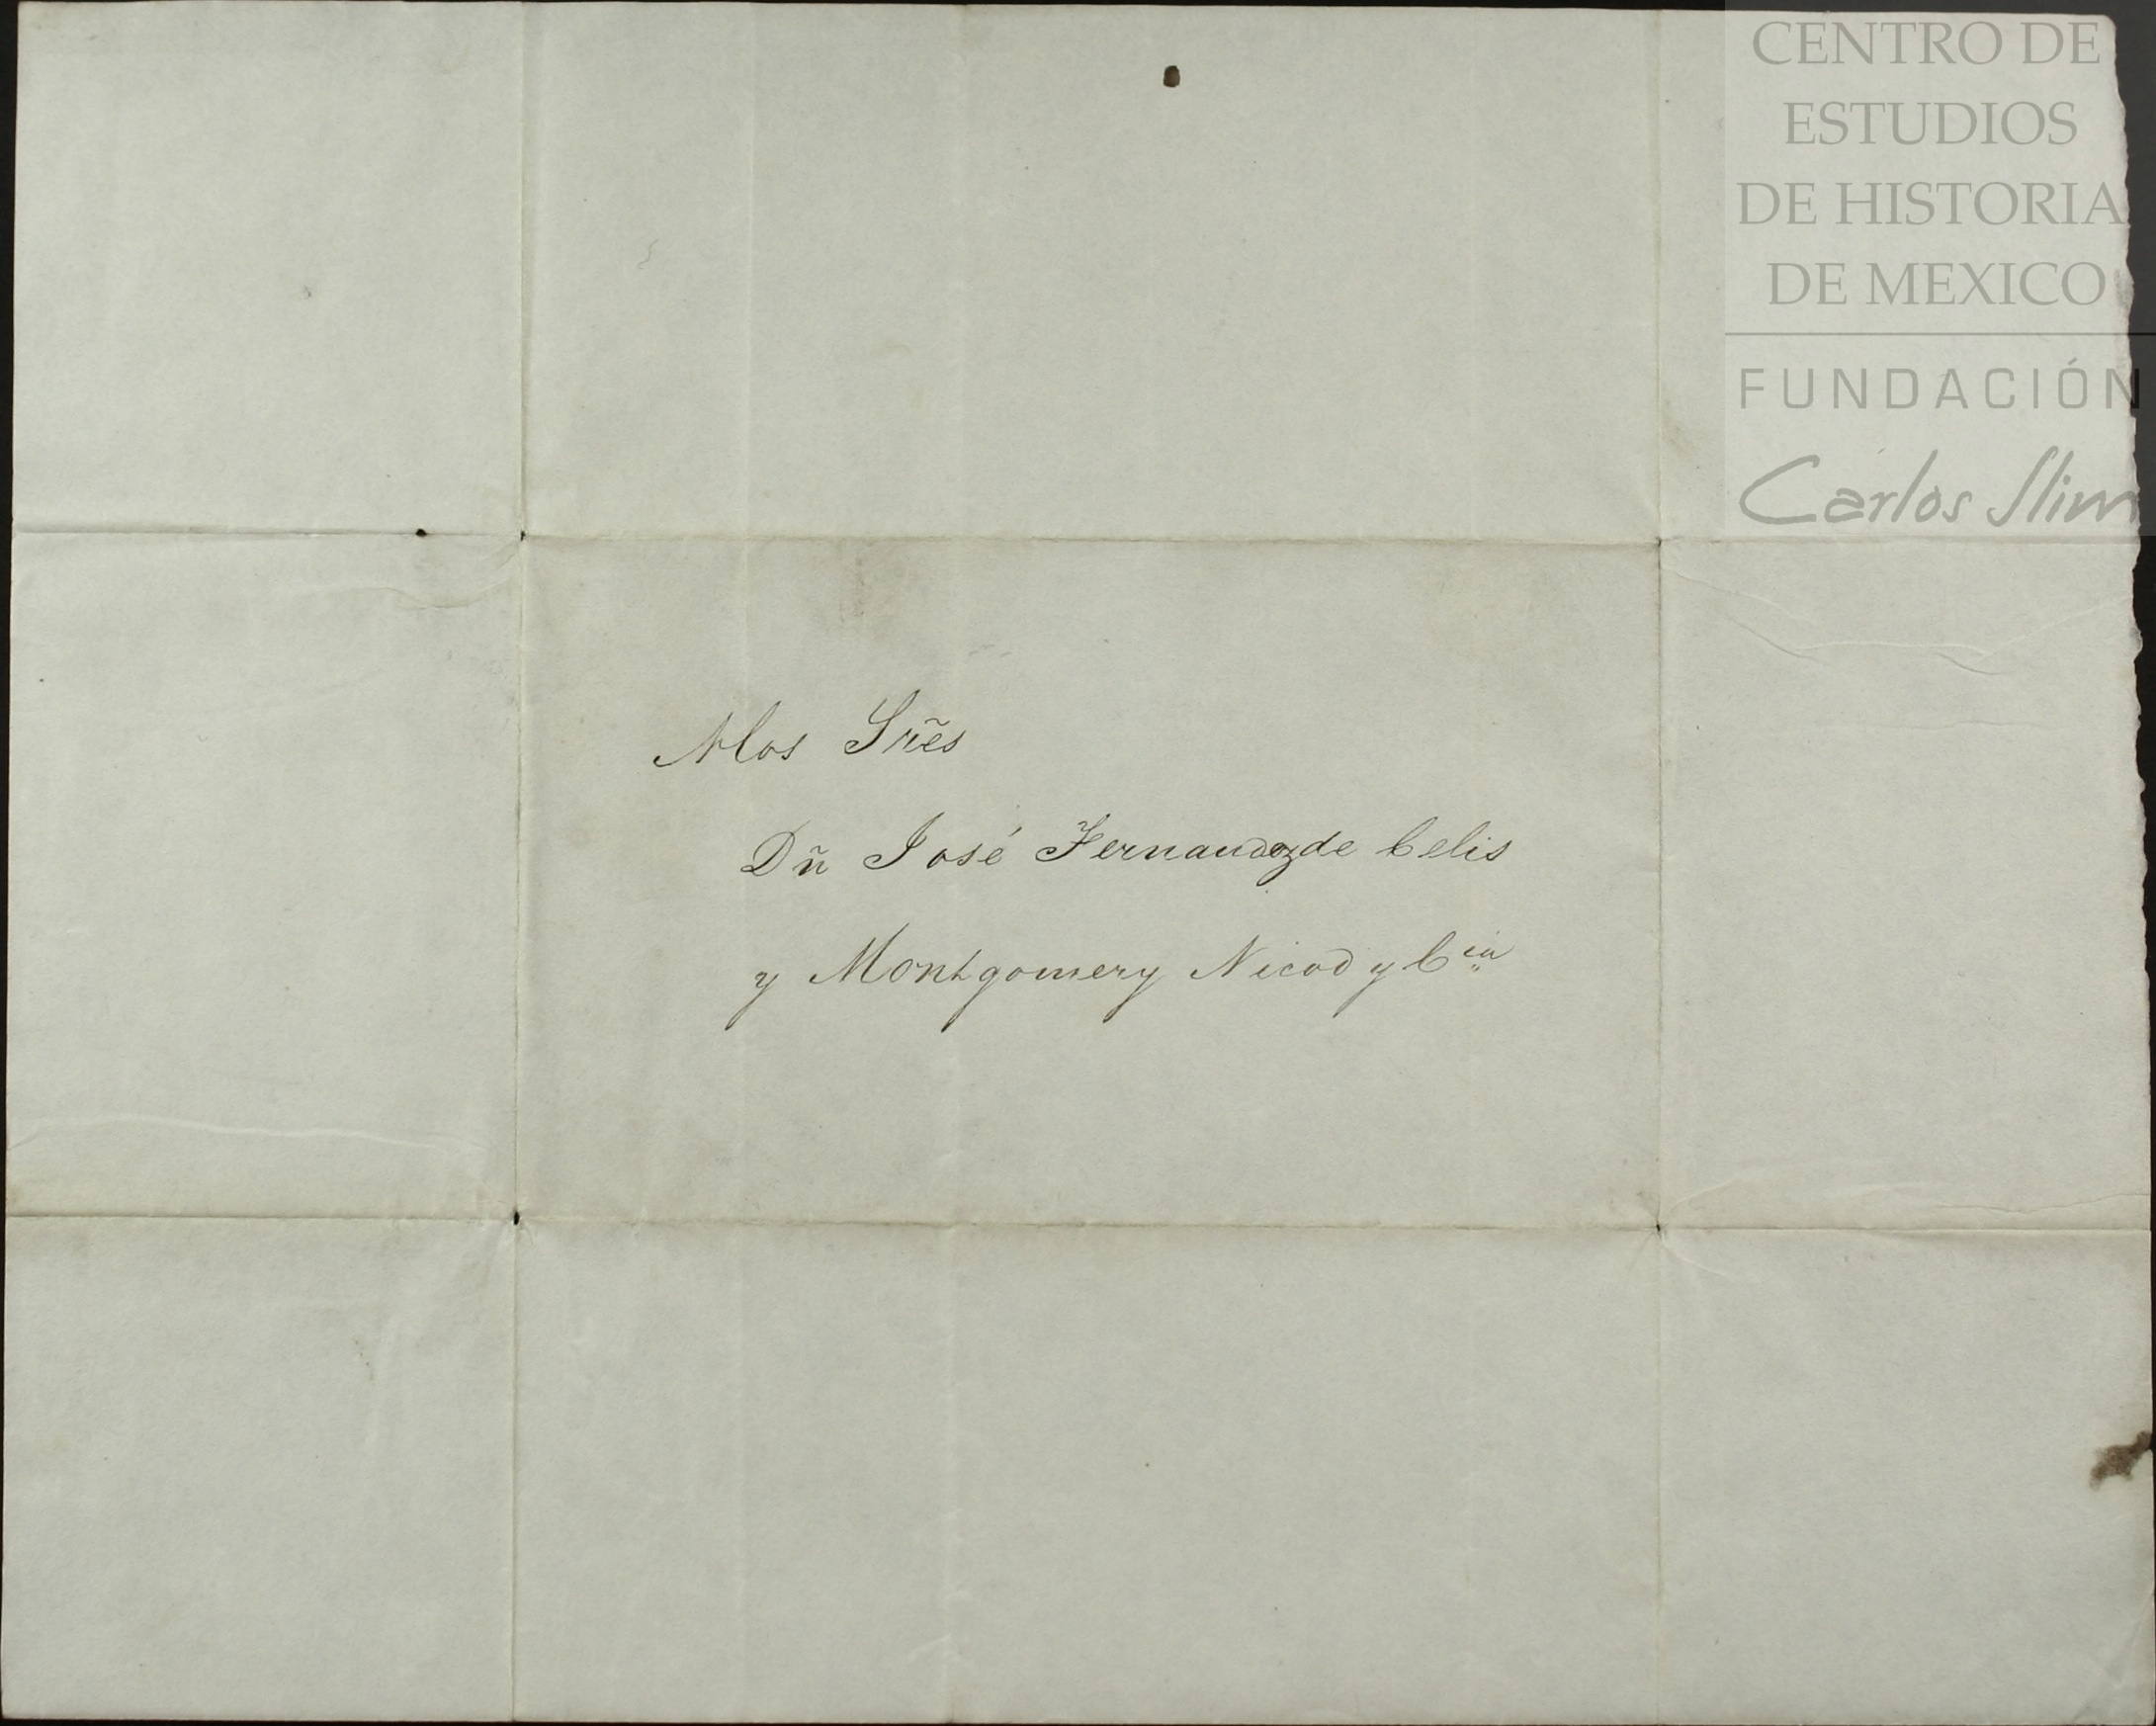 CENTRO DE
ESTUDIOS
DE HISTORIA
DE MEXICO
FUNDACIÓN
Carlos Slim
A los Sñes
Dn̄ José Fernandez de Celis
y Montgomery Nicod y Cia